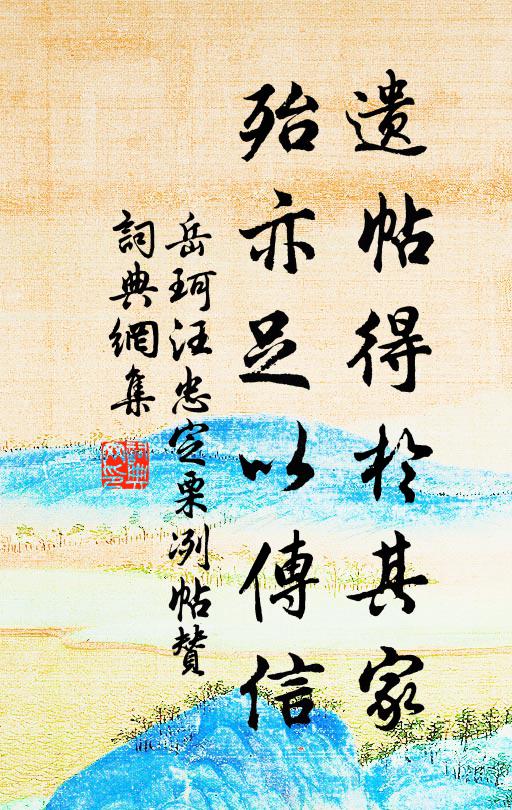 遗帖得於其家
殆亦足以傳信
岳珂汪忠定栗冽帖赞
詞典網集